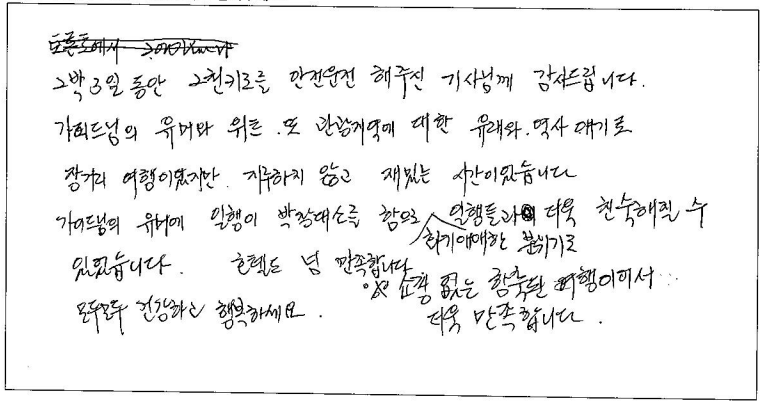 2박 3일 동안 2천키로를 안전운전 해주신 기사님께 감사드립니다.
가이드님의 유머와 위트. 또 관광지역에 대한 유래와. 역사 얘기로
장거리 여행이었지만. 지루하지 않고 재밌는 시간이었습니다
가이드님의 유머에 일행이 박장대소를 함으로 일행들과 더욱 친숙해질 수
화기애애한 분위기로
있었습니다. 호텔도 넘 만족합니다
쇼핑 없는 함축된 여행이어서..
모두모두 건강하고 행복하세요.
더욱 만족합니다.